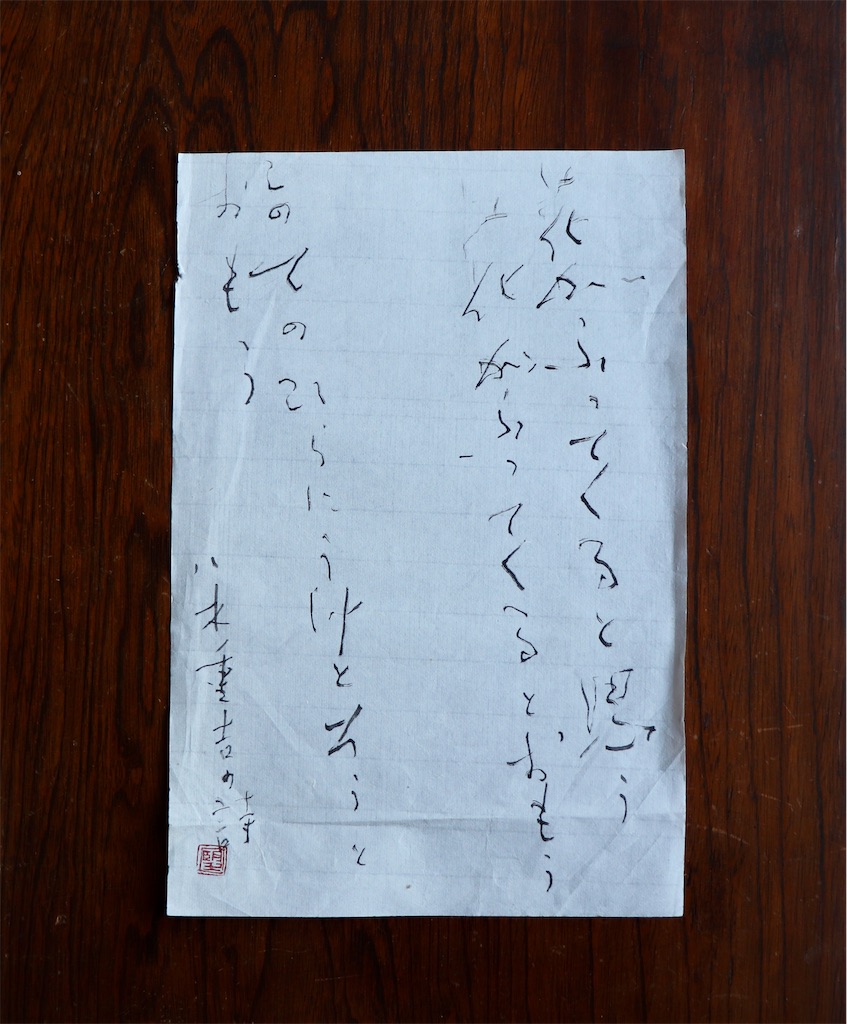 花がふってくると思う
花がふってくるとおもう
この てのひらにうけとろうと
おもう
八木重吉の詩